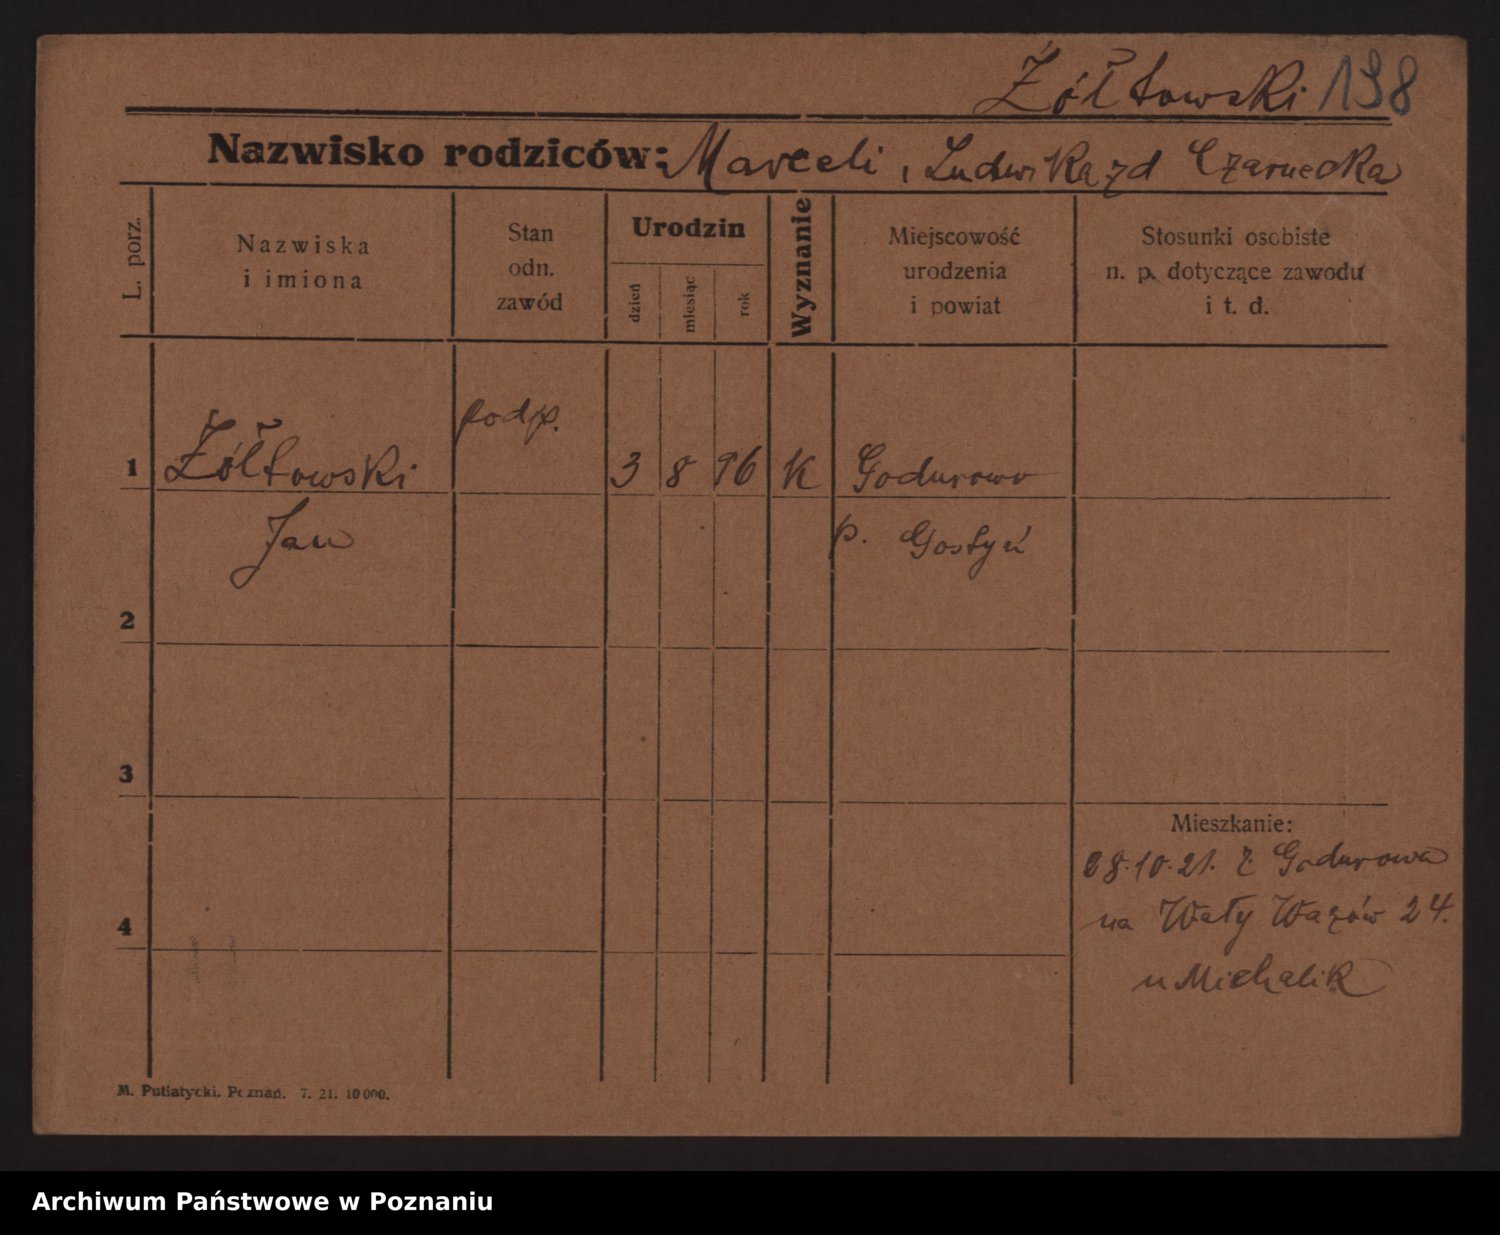 Żółtowski 198
Nazwisko rodziców: Marceli, Ludwika zd Czarnecka
L. porz.
Nazwiska
i imiona
Stan
odn.
zawód
Urodzin
dzień
miesiąc
rok
Wyznanie
Miejscowość
urodzenia
i powiat
Stosunki osobiste
n. p. dotyczące zawodu
i t. d.
1 Żółtowski podp. 3 8 96 K Godurowo
Jan p. Gostyń
2
3
Mieszkanie:
28.10.21. z Godurowa
4
na Wały Wazów 24.
u Michalik
M. Putiatycki. Poznań. 7. 21. 10 000.
Archiwum Państwowe w Poznaniu